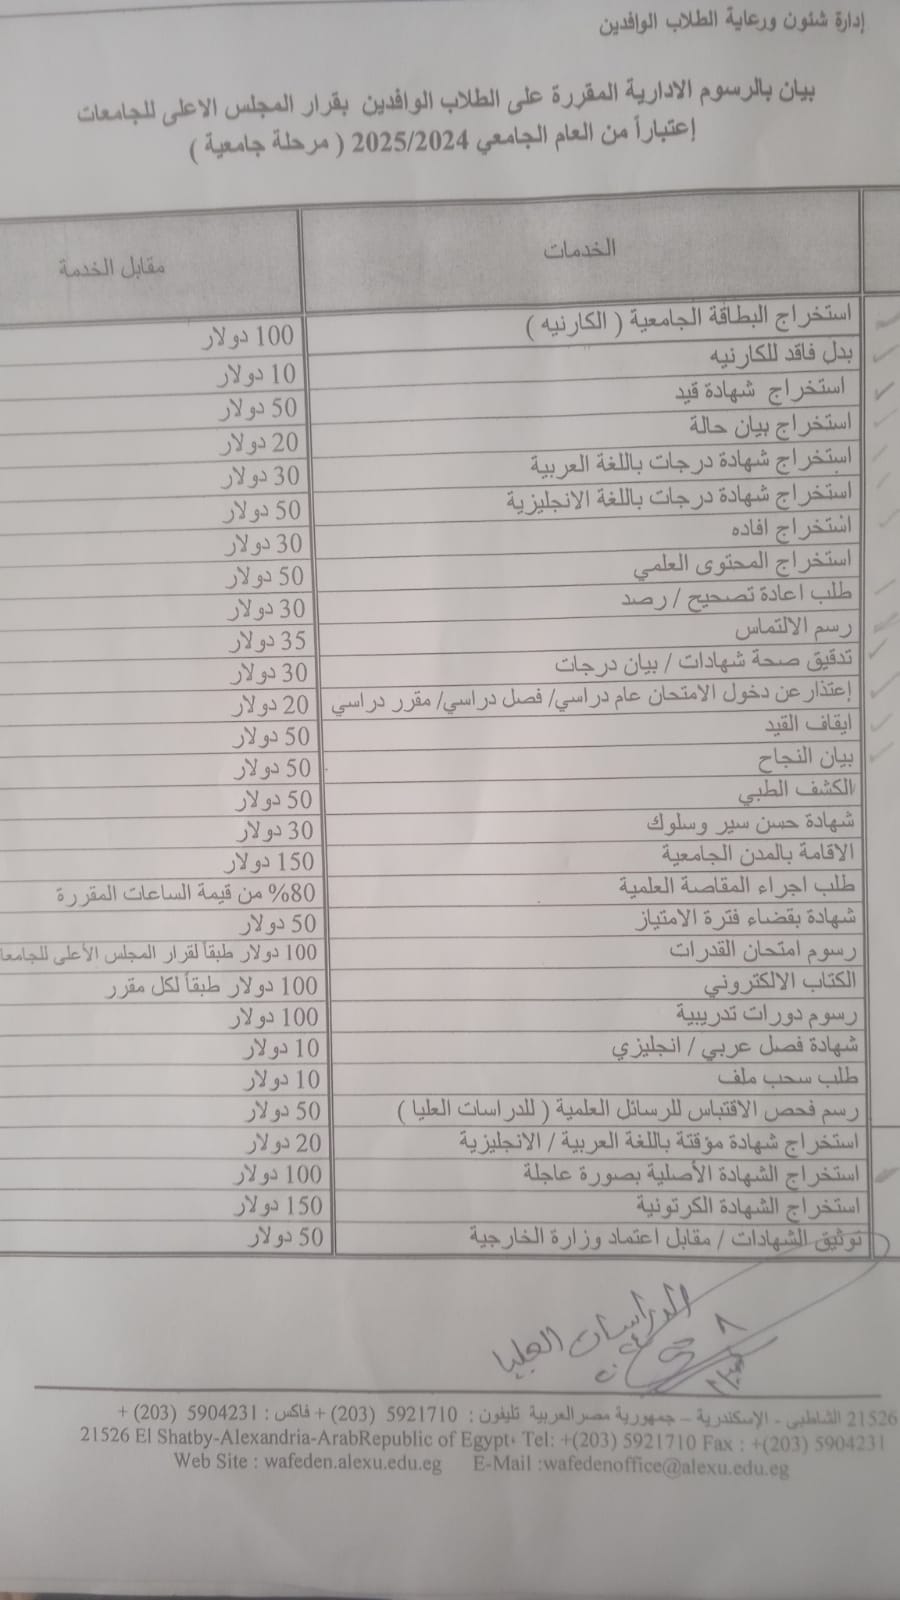 إدارة شئون ورعاية الطلاب الوافدين
بيان بالرسوم الادارية المقررة على الطلاب الوافدين بقرار المجلس الاعلى للجامعات
إعتباراً من العام الجامعي 2025/2024 ( مرحلة جامعية )
الخدمات مقابل الخدمة
استخراج البطاقة الجامعية ( الكارنيه ) 100 دولار
بدل فاقد للكارنيه 10 دولار
استخراج شهادة قيد 50 دولار
استخراج بيان حالة 20 دولار
استخراج شهادة درجات باللغة العربية 30 دولار
استخراج شهادة درجات باللغة الانجليزية 50 دولار
استخراج افاده 30 دولار
استخراج المحتوى العلمي 50 دولار
طلب اعادة تصحيح / رصد 30 دولار
رسم الالتماس 35 دولار
تدقيق صحة شهادات / بيان درجات 30 دولار
إعتذار عن دخول الامتحان عام دراسي/ فصل دراسي/ مقرر دراسي 20 دولار
ايقاف القيد 50 دولار
بيان النجاح 50 دولار
الكشف الطبي 50 دولار
شهادة حسن سير وسلوك 30 دولار
الاقامة بالمدن الجامعية 150 دولار
طلب اجراء المقاصة العلمية 80% من قيمة الساعات المقررة
شهادة بقضاء فترة الامتياز 50 دولار
رسوم امتحان القدرات 100 دولار طبقاً لقرار المجلس الأعلى للجامعا
الكتاب الالكتروني 100 دولار طبقاً لكل مقرر
رسوم دورات تدريبية 100 دولار
شهادة فصل عربي / انجليزي 10 دولار
طلب سحب ملف 10 دولار
رسم فحص الاقتباس للرسائل العلمية ( للدراسات العليا ) 50 دولار
استخراج شهادة مؤقتة باللغة العربية / الانجليزية 20 دولار
استخراج الشهادة الأصلية بصورة عاجلة 100 دولار
استخراج الشهادة الكرتونية 150 دولار
توثيق الشهادات / مقابل اعتماد وزارة الخارجية 50 دولار
الدراسات العليا
21526 الشاطبى - الإسكندرية – جمهورية مصر العربية تليفون : 5921710 (203) + فاكس : 5904231 (203) +
21526 El Shatby-Alexandria-ArabRepublic of Egypt، Tel: +(203) 5921710 Fax : +(203) 5904231
Web Site : wafeden.alexu.edu.eg E-Mail :wafedenoffice@alexu.edu.eg